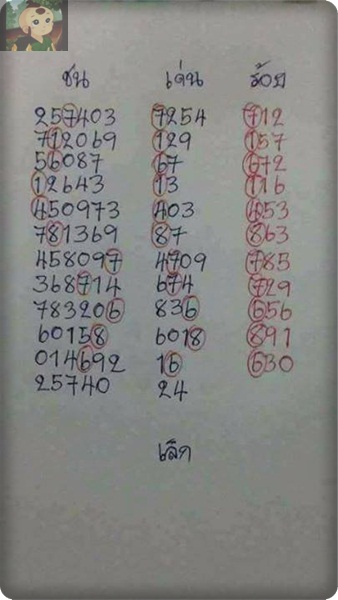 ชน เด่น ร้อย
257403 7254 712
712069 129 157
56087 67 672
12643 13 116
450973 403 453
781369 87 863
458097 4709 785
368714 674 729
783206 836 656
60158 6018 891
014692 16 630
25740 24
เลิด